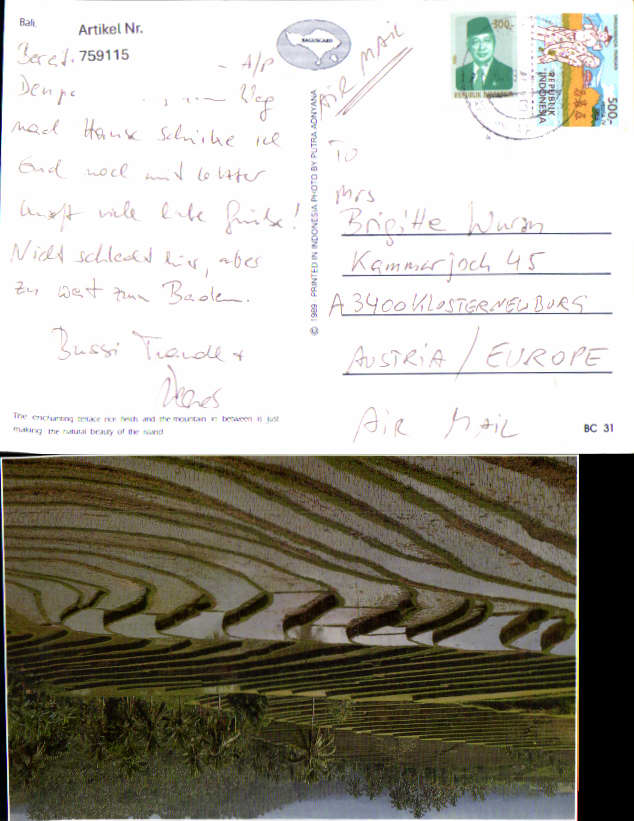 Bali,
Artikel Nr.
759115
Bereits
A/P
Denpa
Weg
nach Hause schicke ich
Euch noch mit letzter
Kraft viele liebe Grüße!
Nicht schlecht hier, aber
zu weit zum Baden.
Bussi Traudl +
The enchanting terrace rice fields and the mountain in between is just
making the natural beauty of the island
© 1989 PRINTED IN INDONESIA PHOTO BY PUTRA ADNYANA
AIR MAIL
300,-
REPUBLIK INDONESIA
500,-
REPUBLIK
INDONESIA
TO
Mrs
Brigitte Wurm
Kammerjoch 45
A 3400 KLOSTERNEUBURG
AUSTRIA / EUROPE
AIR MAIL
BC 31